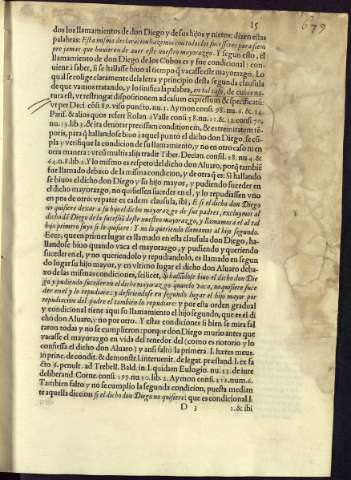 15
679
dos los llamamientos de don Diego y de sus hijos y nietos: dizen estas
palabras: Esta misma declaracion hazemos con todos los sucessores para siem
pre jamas que huuieren de auer este nuestro mayorazgo. Y segun esto, el
llamamiento de don Diego de los Cobos es y fue condicional: con-
uiene a saber, si se hallasse biuo al tiempo que vacasse este mayorazgo. Lo
qual se colige claramente de la letra y principio desta segunda clausula
de que vamos tratando, y lo significa la palabra, en tal caso, de cuius na-
tura est, vt restringat dispositionem ad casum expressum & specificatũ
vt per Deci. cõsi. 89. viso puncto. nu. Aymon consi. 98. nu. 6. & 14.
Paris. & alios quos refert Rolan. à Valle consi. 78. nu.
nu. 15. lib. 3. & ita denotet precissam conditionem, & extremitatem tẽ-
poris, para q̃ hallandose biuo à aquel punto el dicho don Diego, se cũ-
pla y verifique la condicion de su llamamiento, y no en otro caso ni en
otra manera: vt est multis alijs tradit Tiber. Decian. consil. 28. nu. 4. &
Y lo mismo es respeto del dicho don Aluaro, porq̃ tambiẽ
fue llamado debaxo de la misma condicion, y de otra q̃ es: Si hallando
se biuos el dicho don Diego y su hijo mayor, y pudiendo suceder en
el dicho mayorazgo, no quisiessen suceder en el, y lo repudiassen vno
en pos de otro: vt patet ex eadem clausula, ibi; E si el dicho don Diego
no quisiere dexar a su hijo el dicho mayorazgo de sus padres, excluymos al
tal dicho dõ Diego de la sucession deste nuestro mayorazgo, y llamamos a el al tal
hijo primero suyo si lo quisiere: Y no lo queriendo llamamos al hijo segundo.
Ecce, que en primer lugar es llamado en esta clausula don Diego, ha-
llandose biuo quando vaca el mayorazgo, y pudiendo y queriendo
suceder en el, y no queriendolo y repudiandolo, es llamado en segun
do lugar su hijo mayor, y en vltimo lugar el dicho don Aluaro deba-
xo de las mismas condiciones, scilicet, Si hallandose biuo el dicho don Die-
go y pudiendo suceder en el dicho mayorazgo quando vaca, no quisiere suce-
der en el y lo repudiare: y defiriendose en segundo lugar al hijo mayor por
repudiacion del padre el tambien lo repudiare: y por esta orden gradual
y condicional tiene aqui su llamamiento el hijo segundo, que es el di-
cho don Aluaro, y no por otro. Y estas condiciones si bien se mira fal
taron todas y no se cumplieron: porque don Diego murio antes que
vacasse el mayorazgo en vida del tenedor del (como es notorio y lo
confiessa el dicho don Aluaro) y ansi faltò la primera l. hæres meus.
in princ. de condit. & demonst. l. intercenit. de legat. prestand. l. ex fa
cto. §. penult. ad Trebell. Bald. in l. quidam Eulogio. nu. 23. de iure
deliberand. Corne. consi. 257. nu. 30. lib. 2. Aymon consi. 212. num. 6.
Tambien faltò y no se cumplio la segunda condicion, puesta median
te aquella diccion si el dicho don Diego no quisiere: que es condicional l.
D 3
1. & ibi